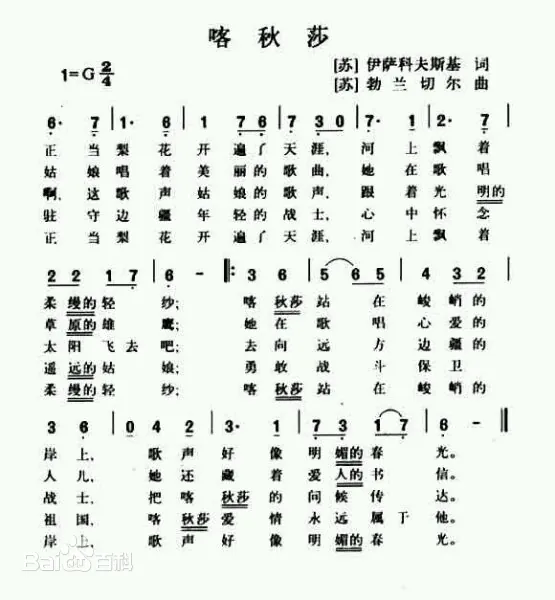 喀秋莎
[苏] 伊萨科夫斯基 词
1=G 2/4
[苏] 勃兰切尔 曲
6· 7 1· 6 1 7 6 7 3 0 7· 1 2· 7
正当梨花开遍了天涯,河上飘着
姑娘唱着美丽的歌曲,她在歌唱
啊,这歌声姑娘的歌声,跟着光明的
驻守边疆年轻的战士,心中怀念
正当梨花开遍了天涯,河上飘着
2 2 1 7 6 - 3 6 5 6 5 4 3 2
柔缦的轻纱;喀秋莎站在峻峭的
草原的雄鹰;她在歌唱心爱的
太阳飞去吧;去向远方边疆的
遥远的姑娘;勇敢战斗保卫
柔缦的轻纱;喀秋莎站在峻峭的
3 6 0 4 2 3· 1 7 3 1 7 6 -
岸上,歌声好像明媚的春光。
人儿,她还藏着爱人的书信。
战士,把喀秋莎的问候传达。
祖国,喀秋莎爱情永远属于他。
岸上,歌声好像明媚的春光。
Bai百科